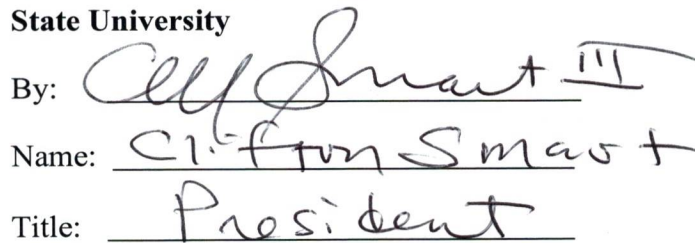 State University
By: Cliff Smart III
Name: Clifton Smart
Title: President